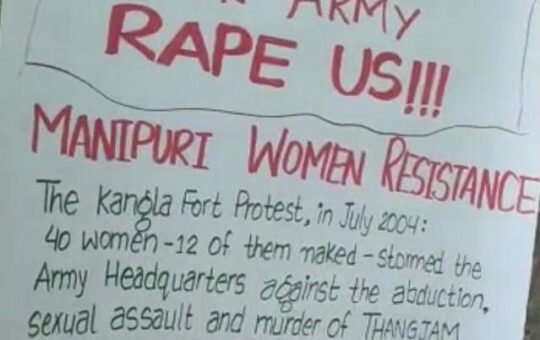 ARMY
RAPE US!!!
MANIPURI WOMEN RESISTANCE
The Kangla Fort Protest, in July 2004:
40 women - 12 of them naked - stormed the
Army Headquarters against the abduction,
sexual assault and murder of THANGJAM